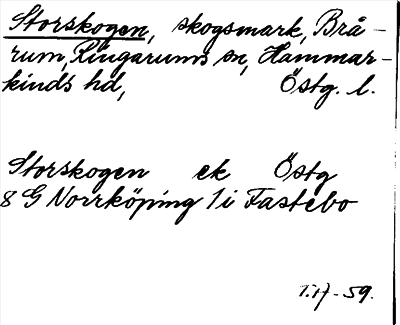 Storskogen, skogsmark, Brå-
rum, Ringarums sn, Hammar-
kinds hd, Östg. l.
Storskogen ek Östg
8 G Norrköping 1i Fastebo
T.H-59.